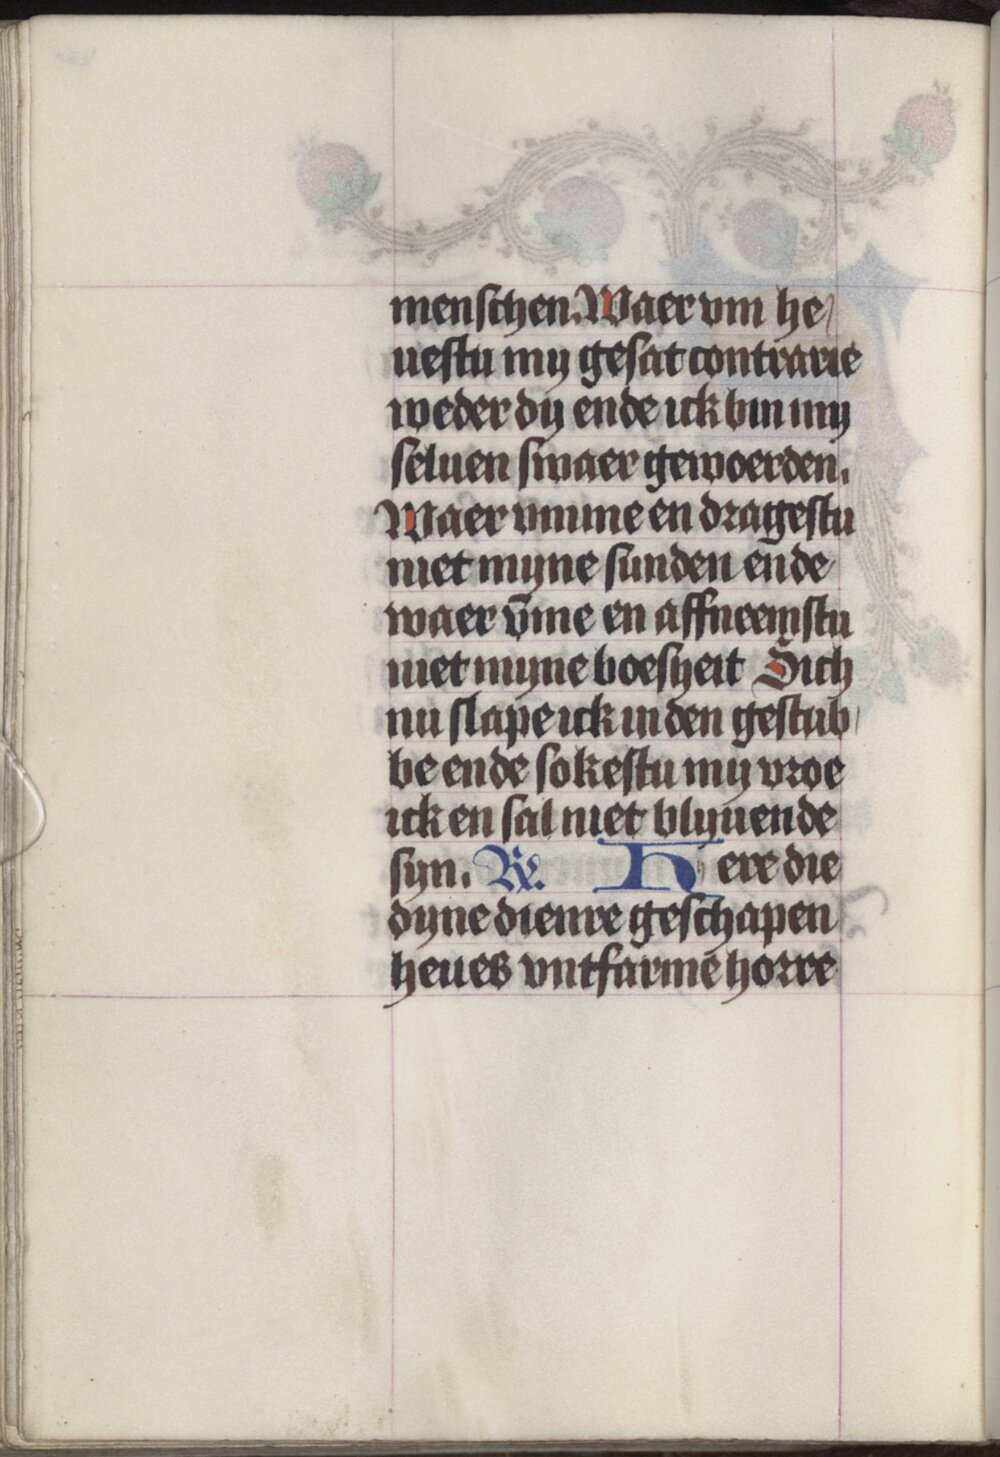 menschen. Waer vm he/
uestu my gesat contrarie
weder dy ende ick bin my
seluen swaer gewoerden.
Waer vmme en dragestu
niet myne sunden ende
waer v̄me en affneemstu
niet myne boesheit Sich
nu slape ick in den gestub/
be ende sokestu my vroe
ick en sal niet blyuende
syn. R̷. Here die
dyne dienre geschapen
heues vntfarmē horre